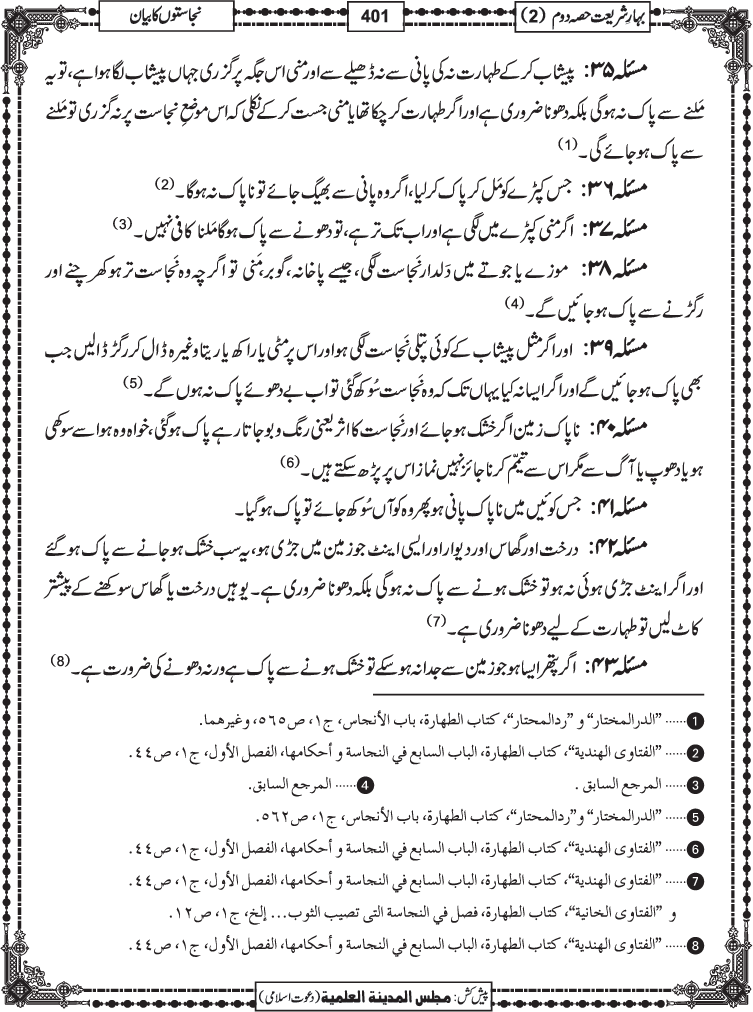 بہار شریعت حصہ دوم (2)
401
نجاستوں کا بیان
مسئلہ ۳۵: پیشاب کر کے طہارت نہ کی پانی سے نہ ڈھیلے سے اور منی اس جگہ پر گزری جہاں پیشاب لگا ہوا ہے، تو یہ
مَلنے سے پاک نہ ہوگی بلکہ دھونا ضروری ہے اور اگر طہارت کر چکا تھا یا منی جست کر کے نکلی کہ اس موضعِ نجاست پر نہ گزری تو مَلنے
سے پاک ہو جائے گی۔ (1)
مسئلہ ۳۶: جس کپڑے کو مَل کر پاک کر لیا، اگر وہ پانی سے بھیگ جائے تو ناپاک نہ ہوگا۔ (2)
مسئلہ ۳۷: اگر منی کپڑے میں لگی ہے اور اب تک تر ہے، تو دھونے سے پاک ہوگا مَلنا کافی نہیں۔ (3)
مسئلہ ۳۸: موزے یا جوتے میں دَلدار نَجاست لگی، جیسے پاخانہ، گوبر، مَنی تو اگرچہ وہ نَجاست تر ہو کھرچنے اور
رگڑنے سے پاک ہو جائیں گے۔ (4)
مسئلہ ۳۹: اور اگر مثل پیشاب کے کوئی پتلی نَجاست لگی ہو اور اس پر مٹی یا راکھ یا ریتا وغیرہ ڈال کر رگڑ ڈالیں جب
بھی پاک ہو جائیں گے اور اگر ایسا نہ کیا یہاں تک کہ وہ نَجاست سُوکھ گئی تو اب بے دھوئے پاک نہ ہوں گے۔ (5)
مسئلہ ۴۰: ناپاک زمین اگر خشک ہو جائے اور نَجاست کا اثر یعنی رنگ و بو جاتا رہے پاک ہو گئی، خواہ وہ ہوا سے سوکھی
ہو یا دھوپ یا آگ سے مگر اس سے تیمّم کرنا جائز نہیں نماز اس پر پڑھ سکتے ہیں۔ (6)
مسئلہ ۴۱: جس کوئیں میں ناپاک پانی ہو پھر وہ کوآں سُوکھ جائے تو پاک ہو گیا۔
مسئلہ ۴۲: درخت اور گھاس اور دیوار اور ایسی اینٹ جو زمین میں جڑی ہو، یہ سب خشک ہو جانے سے پاک ہو گئے
اور اگر اینٹ جڑی ہوئی نہ ہو تو خشک ہونے سے پاک نہ ہوگی بلکہ دھونا ضروری ہے۔ یوہیں درخت یا گھاس سوکھنے کے پیشتر
کاٹ لیں تو طہارت کے لیے دھونا ضروری ہے۔ (7)
مسئلہ ۴۳: اگر پتھر ایسا ہو جو زمین سے جدا نہ ہو سکے تو خشک ہونے سے پاک ہے ورنہ دھونے کی ضرورت ہے۔ (8)
1 ...... "الدرالمختار" و "ردالمحتار"، كتاب الطهارة، باب الأنجاس، ج١، ص٥٦٥، وغيرهما.
2 ...... "الفتاوى الهندية"، كتاب الطهارة، الباب السابع في النجاسة و أحكامها، الفصل الأول، ج١، ص٤٤.
3 ...... المرجع السابق . 4 ...... المرجع السابق.
5 ...... "الدرالمختار" و"ردالمحتار"، كتاب الطهارة، باب الأنجاس، ج١، ص٥٦٢.
6 ...... "الفتاوى الهندية"، كتاب الطهارة، الباب السابع في النجاسة و أحكامها، الفصل الأول، ج١، ص٤٤.
7 ...... "الفتاوى الهندية"، كتاب الطهارة، الباب السابع في النجاسة و أحكامها، الفصل الأول، ج١، ص٤٤.
و "الفتاوى الخانية"، كتاب الطهارة، فصل في النجاسة التى تصيب الثوب... إلخ، ج١، ص١٢.
8 ...... "الفتاوى الهندية"، كتاب الطهارة، الباب السابع في النجاسة و أحكامها، الفصل الأول، ج١، ص٤٤.
پیش کش: مجلس المدينة العلمية (دعوت اسلامی)